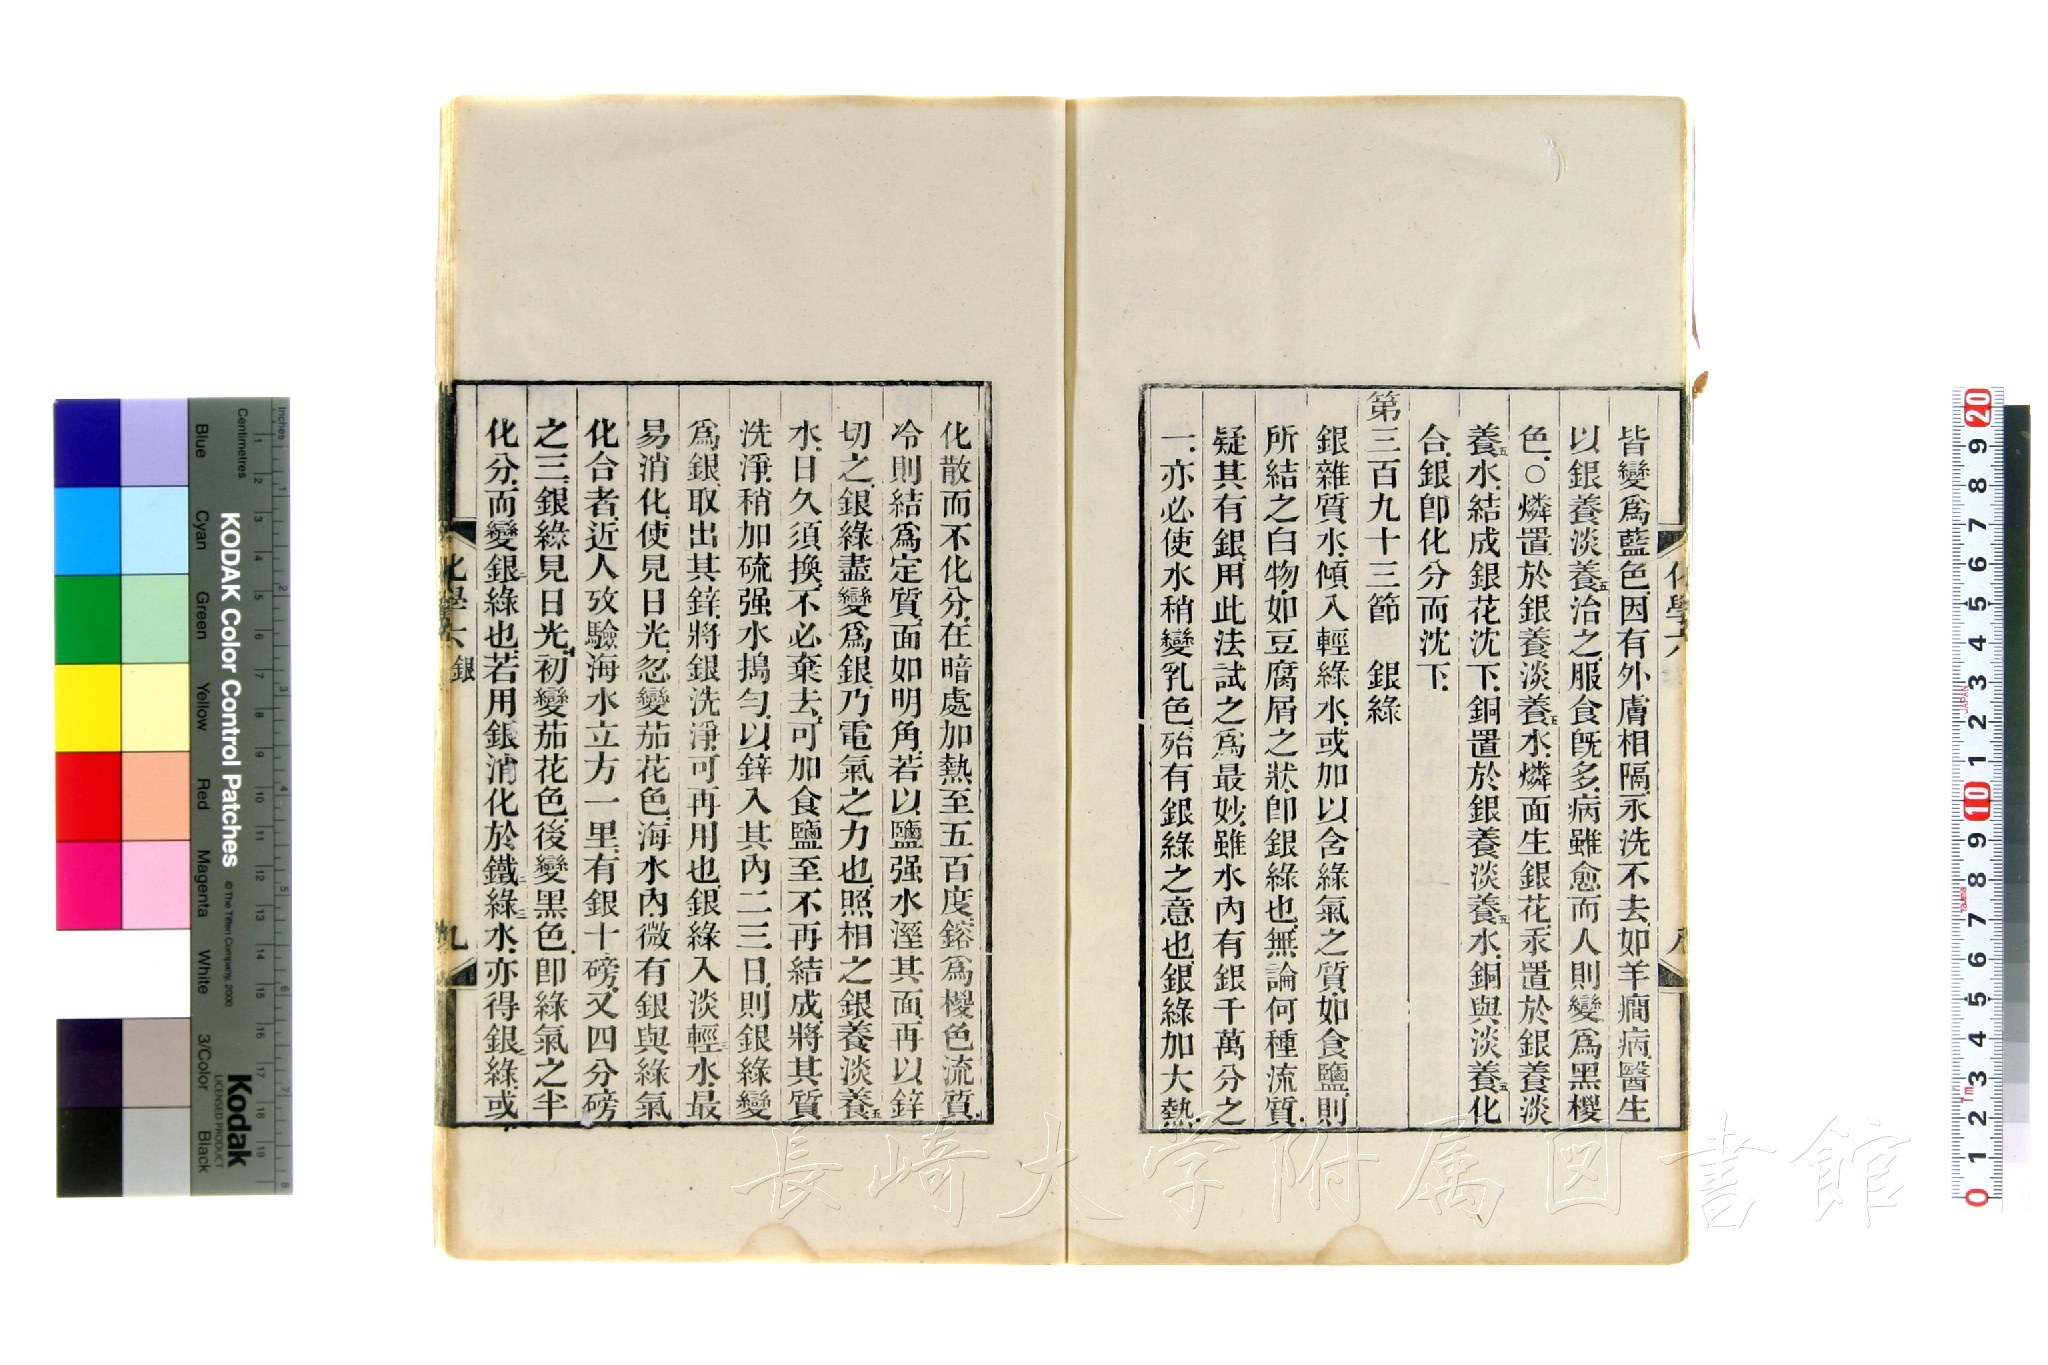 皆變爲藍色.因有外膚相隔.永洗不去.如羊癎病.醫生
以銀養淡養五治之.服食旣多.病雖愈而人則變爲黑椶
色.○燐置於銀養淡養五水.燐面生銀花.汞置於銀養淡
養五水.結成銀花沈下.銅置於銀養淡養五水.銅與淡養五化
合.銀卽化分而沈下.
第三百九十三節 銀綠
銀雜質水.傾入輕綠水.或加以含綠氣之質.如食鹽.則
所結之白物.如豆腐屑之狀.卽銀綠也.無論何種流質.
疑其有銀.用此法試之.爲最妙.雖水內有銀千萬分之
一.亦必使水稍變乳色.殆有銀綠之意也.銀綠加大熱.
化散而不化分.在暗處加熱至五百度.鎔爲椶色流質.
冷則結爲定質.面如明角.若以鹽强水溼其面.再以鋅
切之.銀綠盡變爲銀.乃電氣之力也.照相之銀養淡養五
水.日久須換.不必棄去.可加食鹽.至不再結成.將其質
洗淨.稍加硫强水搗勻.以鋅入其內二三日.則銀綠變
爲銀.取出其鋅.將銀洗淨.可再用也.銀綠入淡輕三水.最
易消化.使見日光.忽變茄花色.海水內.微有銀與綠氣
化合者.近人攷驗海水立方一里.有銀十磅.又四分磅
之三.銀綠見日光.初變茄花色.後變黑色.卽綠氣之半
化分.而變銀二綠也.若用銀消化於鐵二綠三水.亦得銀二綠.或
化學六 銀
九
KODAK Color Control Patches
© The Tiffen Company, 2000
Kodak
LICENSED PRODUCT
Inches
Centimetres
Blue
Cyan
Green
Yellow
Red
Magenta
White
3/Color
Black
長崎大学附属図書館